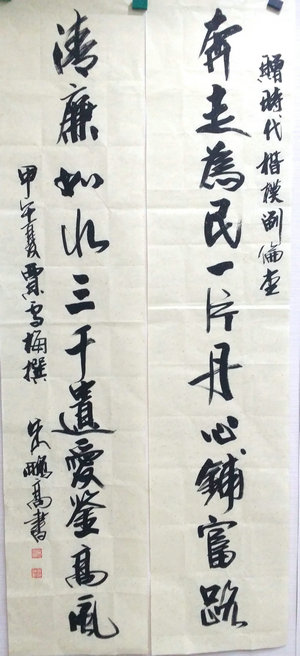 贈時代楷模劉倫堂
奔走為民一片丹心鋪富路
清廉如水三千遺愛鉴高風
甲午夏賈雪梅撰
朱鵬高書